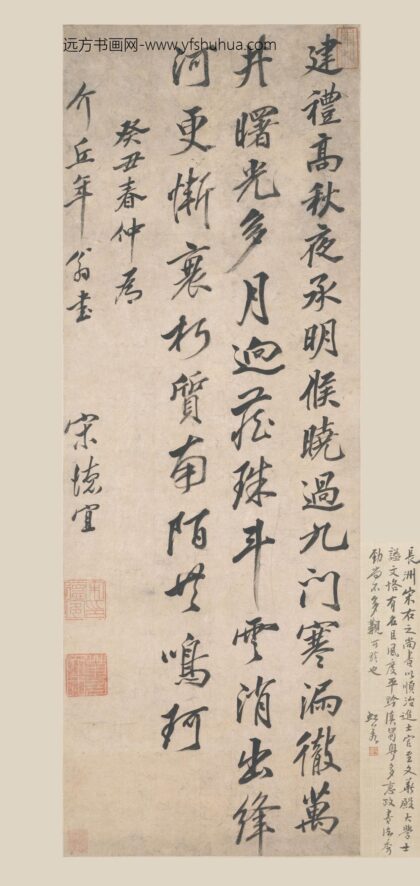 远方书画网-www.yfshuhua.com
建禮高秋夜承明候曉過九門寒漏徹萬
井曙光多月迥藏珠斗雲消出絳
河更慚衰朽質南陌共鳴珂
癸丑春仲為
介丘年翁書
宋德宜
長洲宋右之尚書以順治進士官至文華殿大學士
謚文恪有古大臣風度平黔滇蜀粵多惠政書法秀
勁尚不多觀可珍也